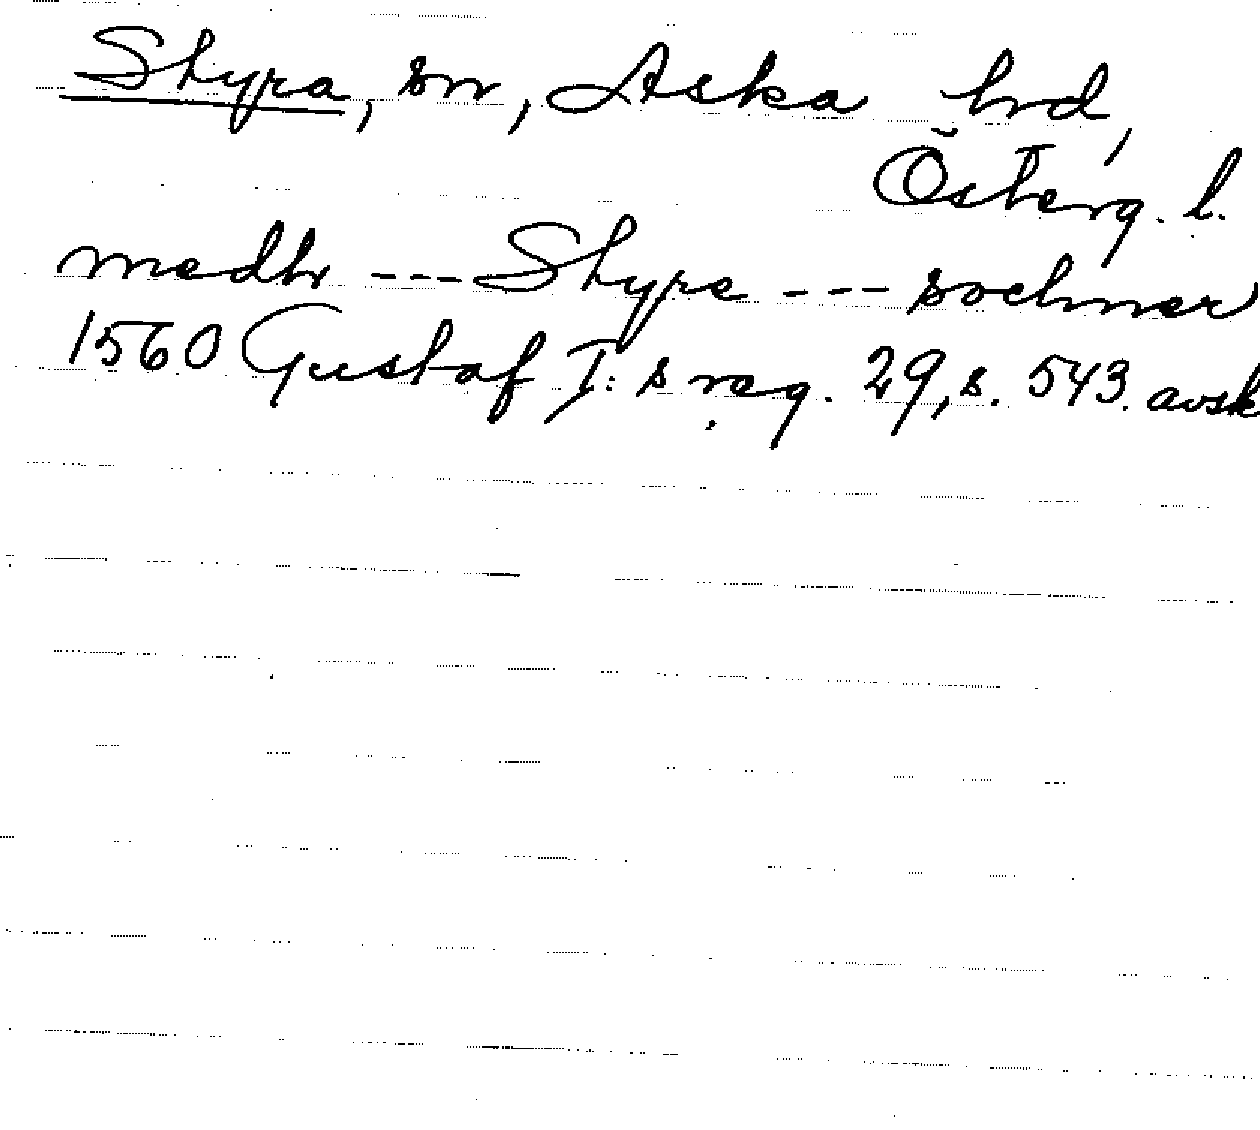 Styra, sn, Aska hrd,
Österg. l.
medh --- Styre --- sochner
1560 Gustaf I:s reg. 29, s. 543. avsk